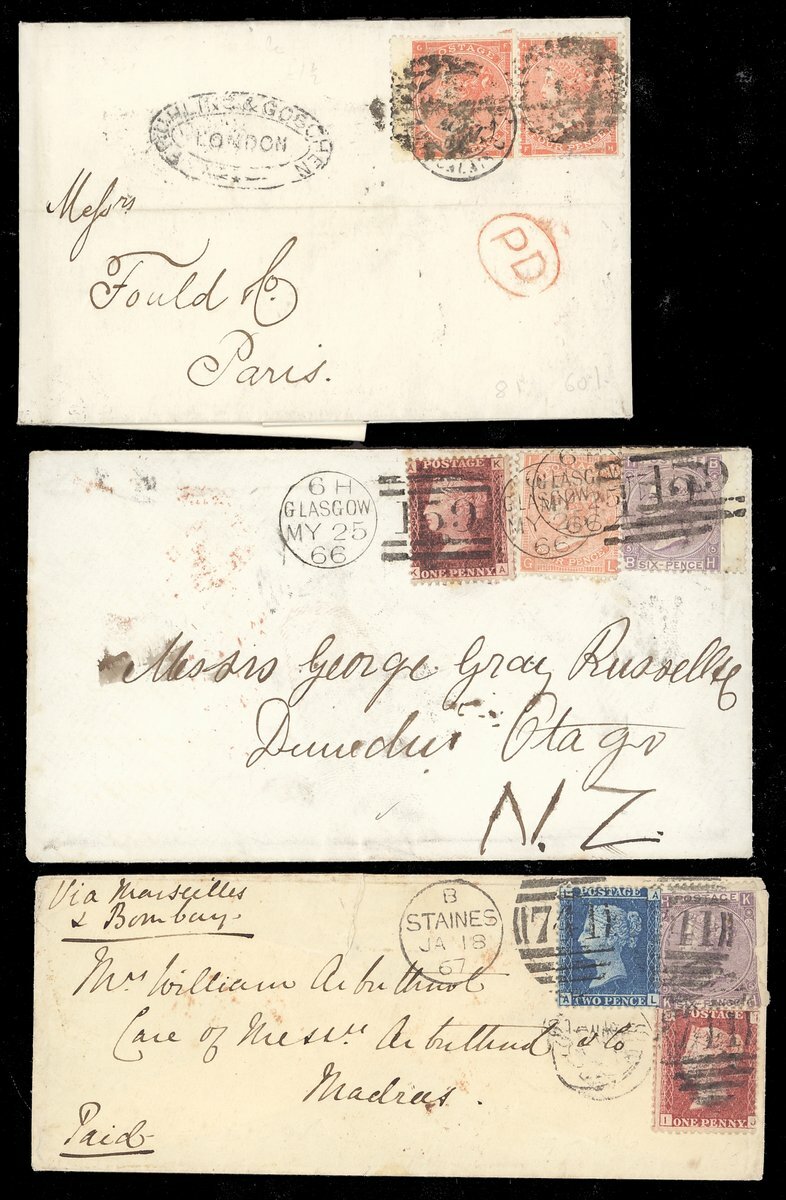 FRÜHLING & GOSCHEN
LONDON
POSTAGE
FOUR PENCE
Messrs
Fould & Co.
Paris.
PD
6 H
GLASGOW
MY 25
66
159
POSTAGE
ONE PENNY
GLASGOW
MY
66
159
SIX-PENCE
Messrs George Gray Russell & Co
Dunedin Otago
N.Z.
Via Marseilles
& Bombay
B
STAINES
JA 18
67
744
POSTAGE
TWO PENCE
POSTAGE
SIX-PENCE
Mrs William Arbuthnot
Care of Messrs Arbuthnot & Co
Madras.
Paid
POSTAGE
ONE PENNY